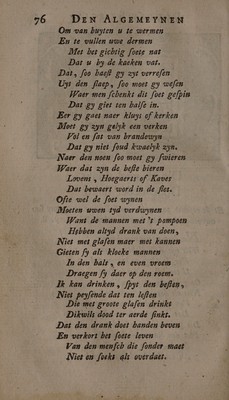 76 DEN ALGEMEYNEN
Om van buyten u te wermen
En te vullen uwe dermen
Met het gichtig soete nat
Dat u by de kaeken vat.
Dat, soo haest gy zyt verresen
Uyt den slaep, soo moet gy wesen
Waer men schenkt dit soet gespin
Dat gy giet ten halse in.
Eer gy gaet naer kluys of kerken
Moet gy zyn gelyk een verken
Vol en sat van brandewyn
Dat gy niet soud kwaelyk zyn.
Naer den noen soo moet gy swieren
Waer dat zyn de beste bieren
Lovens, Hoegaerts of Kaves
Dat bewaert word in de fles.
Ofte wel de soet wynen
Moeten uwen tyd verdwynen
Want de mannen met 't pampoen
Hebben altyd drank van doen,
Niet met glasen maer met kannen
Gieten sy als kloeke mannen
In den hals, en even vroem
Draegen sy daer op den roem.
Ik kan drinken, spyt den besten,
Niet peysende dat ten lesten
Die met groote glasen drinkt
Dikwils dood ter aerde sinkt.
Dat den drank doet handen beven
En verkort het soete leven
Van den mensch die sonder maet
Niet en soekt als overdaet.